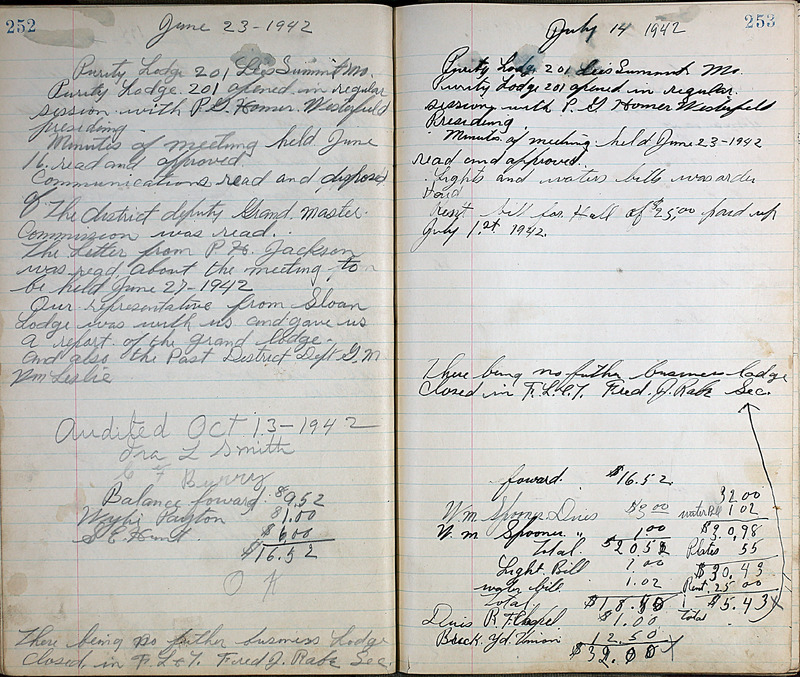 252
June 23-1942
Purity Lodge 201 Lees Summit Mo.
Purity Lodge 201 opened in regular
session with P.G. Homer Westyfeld
presiding.
Minutes of meeting held June
16. read and approved
Communications read and disposed
of The district deputy Grand Master.
Commission was read.
The Letter from P. H. Jackson
was read, about the meeting, to
be held June 27-1942
Our representative from Sloan
Lodge was with us and gave us
a report of the grand lodge.
and also the Past District Dept G. M
Wm Leslie
Audited Oct 13-1942
Ora L Smith
C F Berry
Balance foward $9.52
Payton $1.00
S. E. Hunt $6.00
$16.52
O K
There being no futher business Lodge
Closed, in F. L & T. Fred J. Rabe Sec.
253
July 14 1942
Purity Lodge 201 Lees Summit Mo.
Purity Lodge 201 opened in regular
session with P. G Homer Westyfeld
Presiding
Minutes of meeting held June 23-1942
read and approved.
Lights and waters bills was order
Paid
Rent bill for Hall of $25,00 paid up
July 1.st 1942.
There being no futher business lodge
Closed in F. L. & T. Fred. J. Rabe Sec.
foward. $16.52
Wm Spooner Dues $3.00
W. m Spooner " 1.00
Total. $20.52
Light Bill 1.00
water bill 1.02
total
Dues R. F. $1.00
Breck. Yd. Union 12.50
$32.00
32 00
water Bll 1 02
$30,98
Plates 55
$30.43
Rent. 25 00
$5.43
total